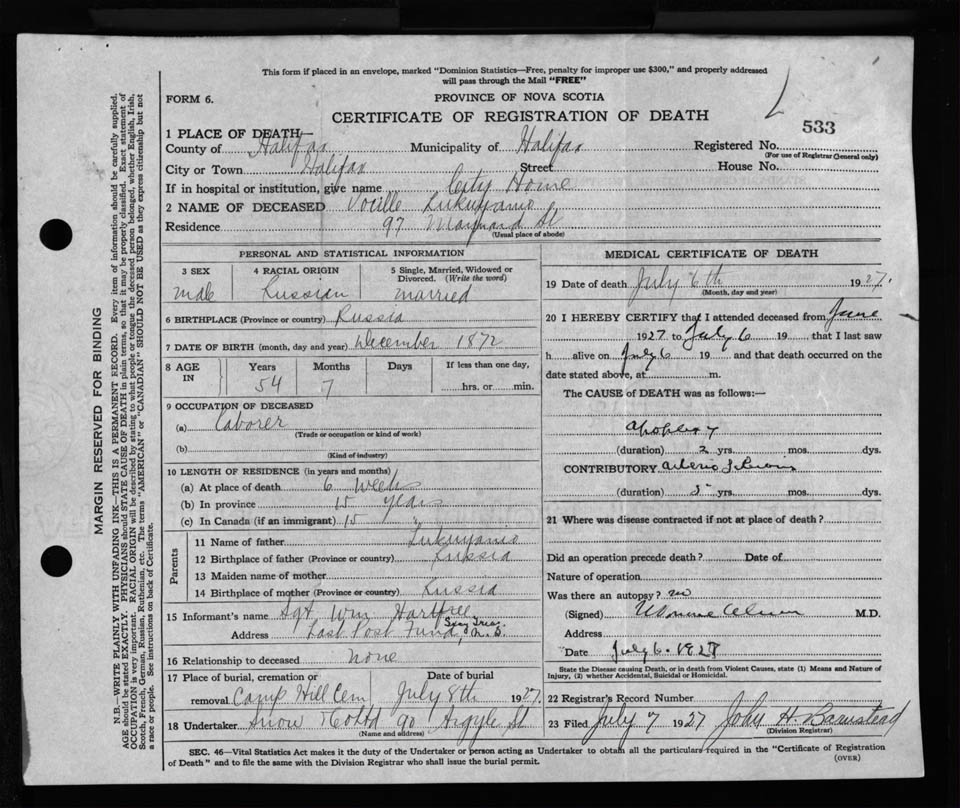 This form if placed in an envelope, marked "Dominion Statistics—Free, penalty for improper use $300," and properly addressed
will pass through the Mail "FREE"
FORM 6.
PROVINCE OF NOVA SCOTIA
CERTIFICATE OF REGISTRATION OF DEATH
533
1 PLACE OF DEATH—
County of Halifax Municipality of Halifax Registered No.
(For use of Registrar General only)
City or Town Halifax Street House No.
If in hospital or institution, give name City Home
2 NAME OF DECEASED
Residence 97 Maynard St
(Usual place of abode)
PERSONAL AND STATISTICAL INFORMATION
3 SEX 4 RACIAL ORIGIN 5 Single, Married, Widowed or
Divorced. (Write the word)
male Russian married
6 BIRTHPLACE (Province or country) Russia
7 DATE OF BIRTH (month, day and year) December 1872
8 AGE IN Years Months Days If less than one day,
54 7 hrs. or min.
9 OCCUPATION OF DECEASED
(a) Laborer
(Trade or occupation or kind of work)
(b)
(Kind of industry)
10 LENGTH OF RESIDENCE (in years and months)
(a) At place of death 6 Weeks
(b) In province 15 years
(c) In Canada (if an immigrant) 15 "
Parents
11 Name of father
12 Birthplace of father (Province or country) Russia
13 Maiden name of mother
14 Birthplace of mother (Province or country) Russia
15 Informant's name Sgt Wm Hartree
Address Last Post Fund, N.S.
16 Relationship to deceased none
17 Place of burial, cremation or Date of burial
removal Camp Hill Cem July 8th 1927.
18 Undertaker Snow Co Ltd 90 Argyle St
(Name and address)
MEDICAL CERTIFICATE OF DEATH
19 Date of death July 6th 1927.
(Month, day and year)
20 I HEREBY CERTIFY that I attended deceased from June
1927 to July 6 19 that I last saw
h alive on July 6 19 and that death occurred on the
date stated above, at m.
The CAUSE of DEATH was as follows:—
Apoplexy
(duration) 2 yrs. mos. dys.
CONTRIBUTORY Arterio Sclerosis
(duration) 5 yrs. mos. dys.
21 Where was disease contracted if not at place of death?
Did an operation precede death? Date of
Nature of operation
Was there an autopsy? no
(Signed) M.D.
Address
Date July 6. 1927
State the Disease causing Death, or in death from Violent Causes, state (1) Means and Nature of
Injury, (2) whether Accidental, Suicidal or Homicidal.
22 Registrar's Record Number
23 Filed July 7 1927 John H. Barnstead
(Division Registrar)
SEC. 46—Vital Statistics Act makes it the duty of the Undertaker or person acting as Undertaker to obtain all the particulars required in the "Certificate of Registration
of Death" and to file the same with the Division Registrar who shall issue the burial permit.
(OVER)
MARGIN RESERVED FOR BINDING
N.B.—WRITE PLAINLY WITH UNFADING INK—THIS IS A PERMANENT RECORD. Every item of information should be carefully supplied.
AGE should be stated EXACTLY. PHYSICIANS should STATE CAUSE OF DEATH in plain terms, so that it may be properly classified. Exact statement of
OCCUPATION is very important. RACIAL ORIGIN will be described by stating to what people or tongue the deceased person belonged, whether English, Irish,
Scotch, French, German, Russian, Ruthenian, etc. The terms "AMERICAN" or "CANADIAN" SHOULD NOT BE USED as they express citizenship but not
a race or people. See instructions on back of Certificate.